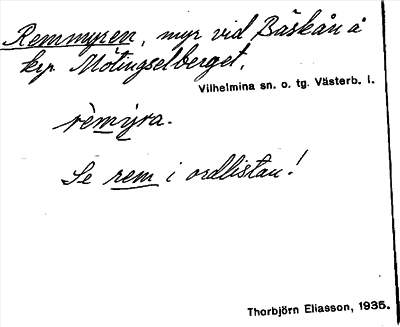 Remmyren, myr vid Bäskån å
krp Mötingselberget.
Vilhelmina sn. o. tg. Västerb. l.
rèmýra.
Se rem i ordlistan!
Thorbjörn Eliasson, 1935.